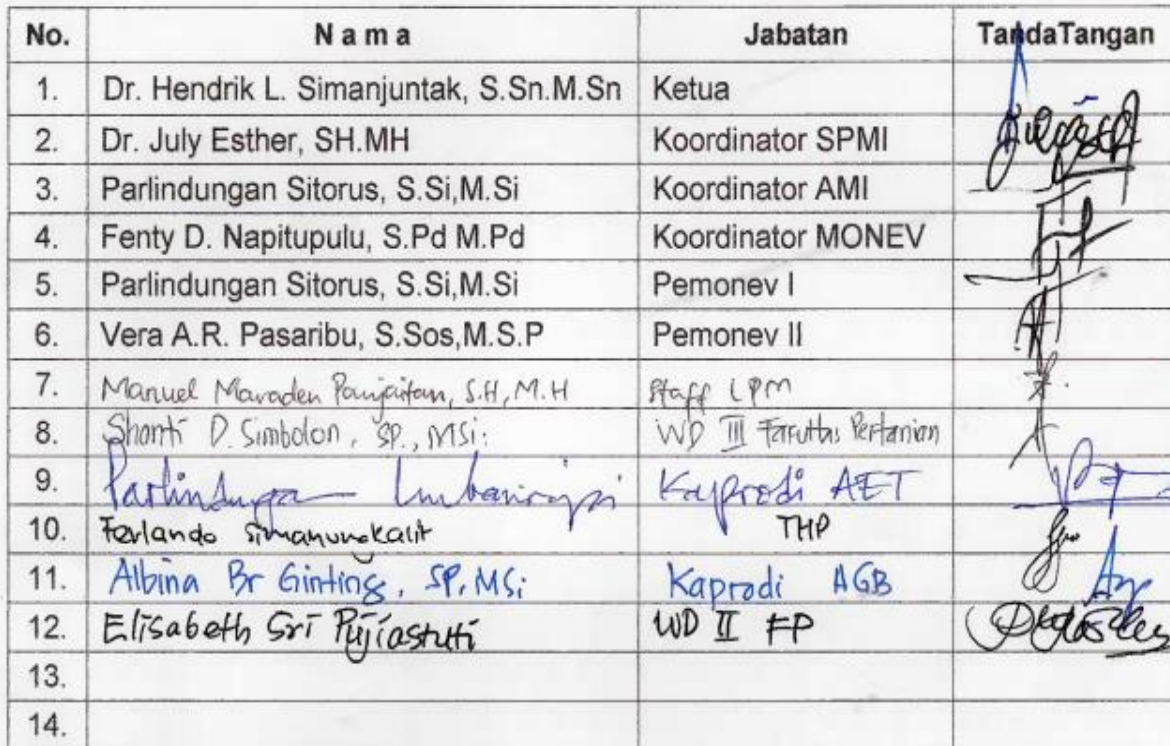 No. Nama Jabatan TandaTangan
1. Dr. Hendrik L. Simanjuntak, S.Sn.M.Sn Ketua
2. Dr. July Esther, SH.MH Koordinator SPMI
3. Parlindungan Sitorus, S.Si,M.Si Koordinator AMI
4. Fenty D. Napitupulu, S.Pd M.Pd Koordinator MONEV
5. Parlindungan Sitorus, S.Si,M.Si Pemonev I
6. Vera A.R. Pasaribu, S.Sos,M.S.P Pemonev II
7. Manuel Maraden Panjaitan, S.H, M.H Staff LPM
8. Shanti D. Simbolon, SP., MSi. WD III Pertanian
9. AET
10. Ferlando Simanungkalit THP
11. Albina Br Ginting, SP, MSi Kaprodi AGB
12. Elisabeth Sri Pujiastuti WD II FP
13.
14.